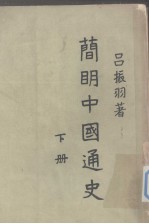 呂振羽著
簡明中國通史
下册